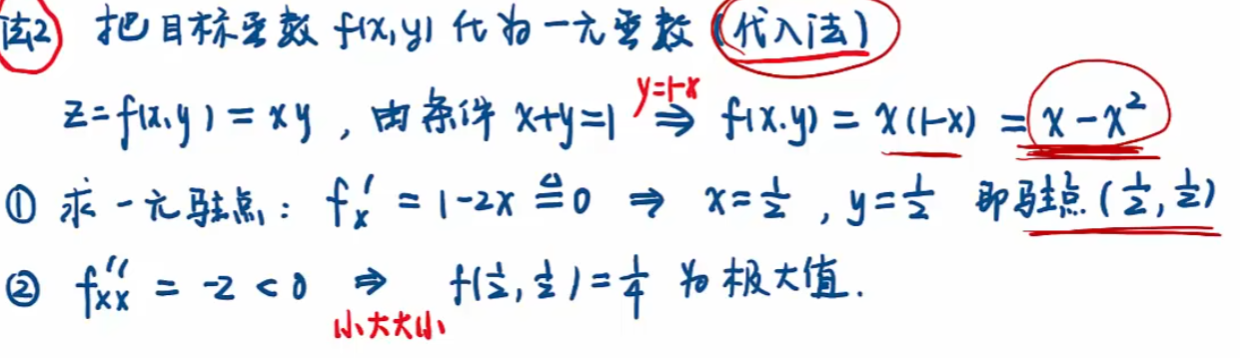 法2 把目标函数 f(x,y) 化为一元函数 (代入法)
y=1-x
z=f(x,y)=xy , 由条件 x+y=1 ⇒ f(x.y) = x(1-x) = x-x²
① 求一元驻点: f'ₓ = 1-2x ≜ 0 ⇒ x=1/2 , y=1/2 即驻点(1/2,1/2)
② f''ₓₓ = -2 < 0 ⇒ f(1/2,1/2)=1/4 为极大值.
小大大小